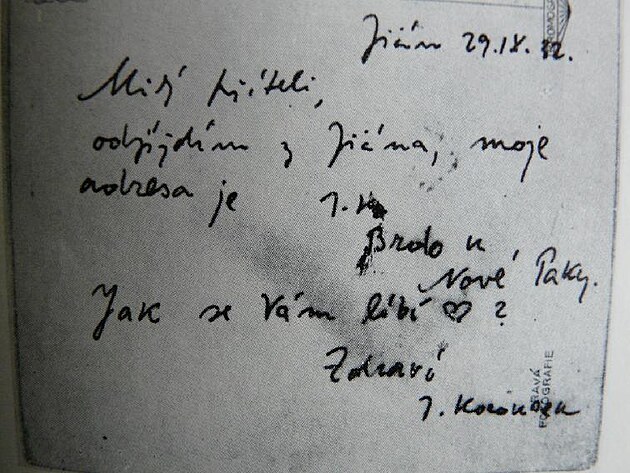 Jičín 29.IX.32.
Milý příteli,
odjíjdím z Jičína, moje
adresa je J.K.
Brdo u
Nové Paky.
Jak se Vám líbí ♡ ?
Zdraví
J.
PRAVÁ
FOTOGRAFIE